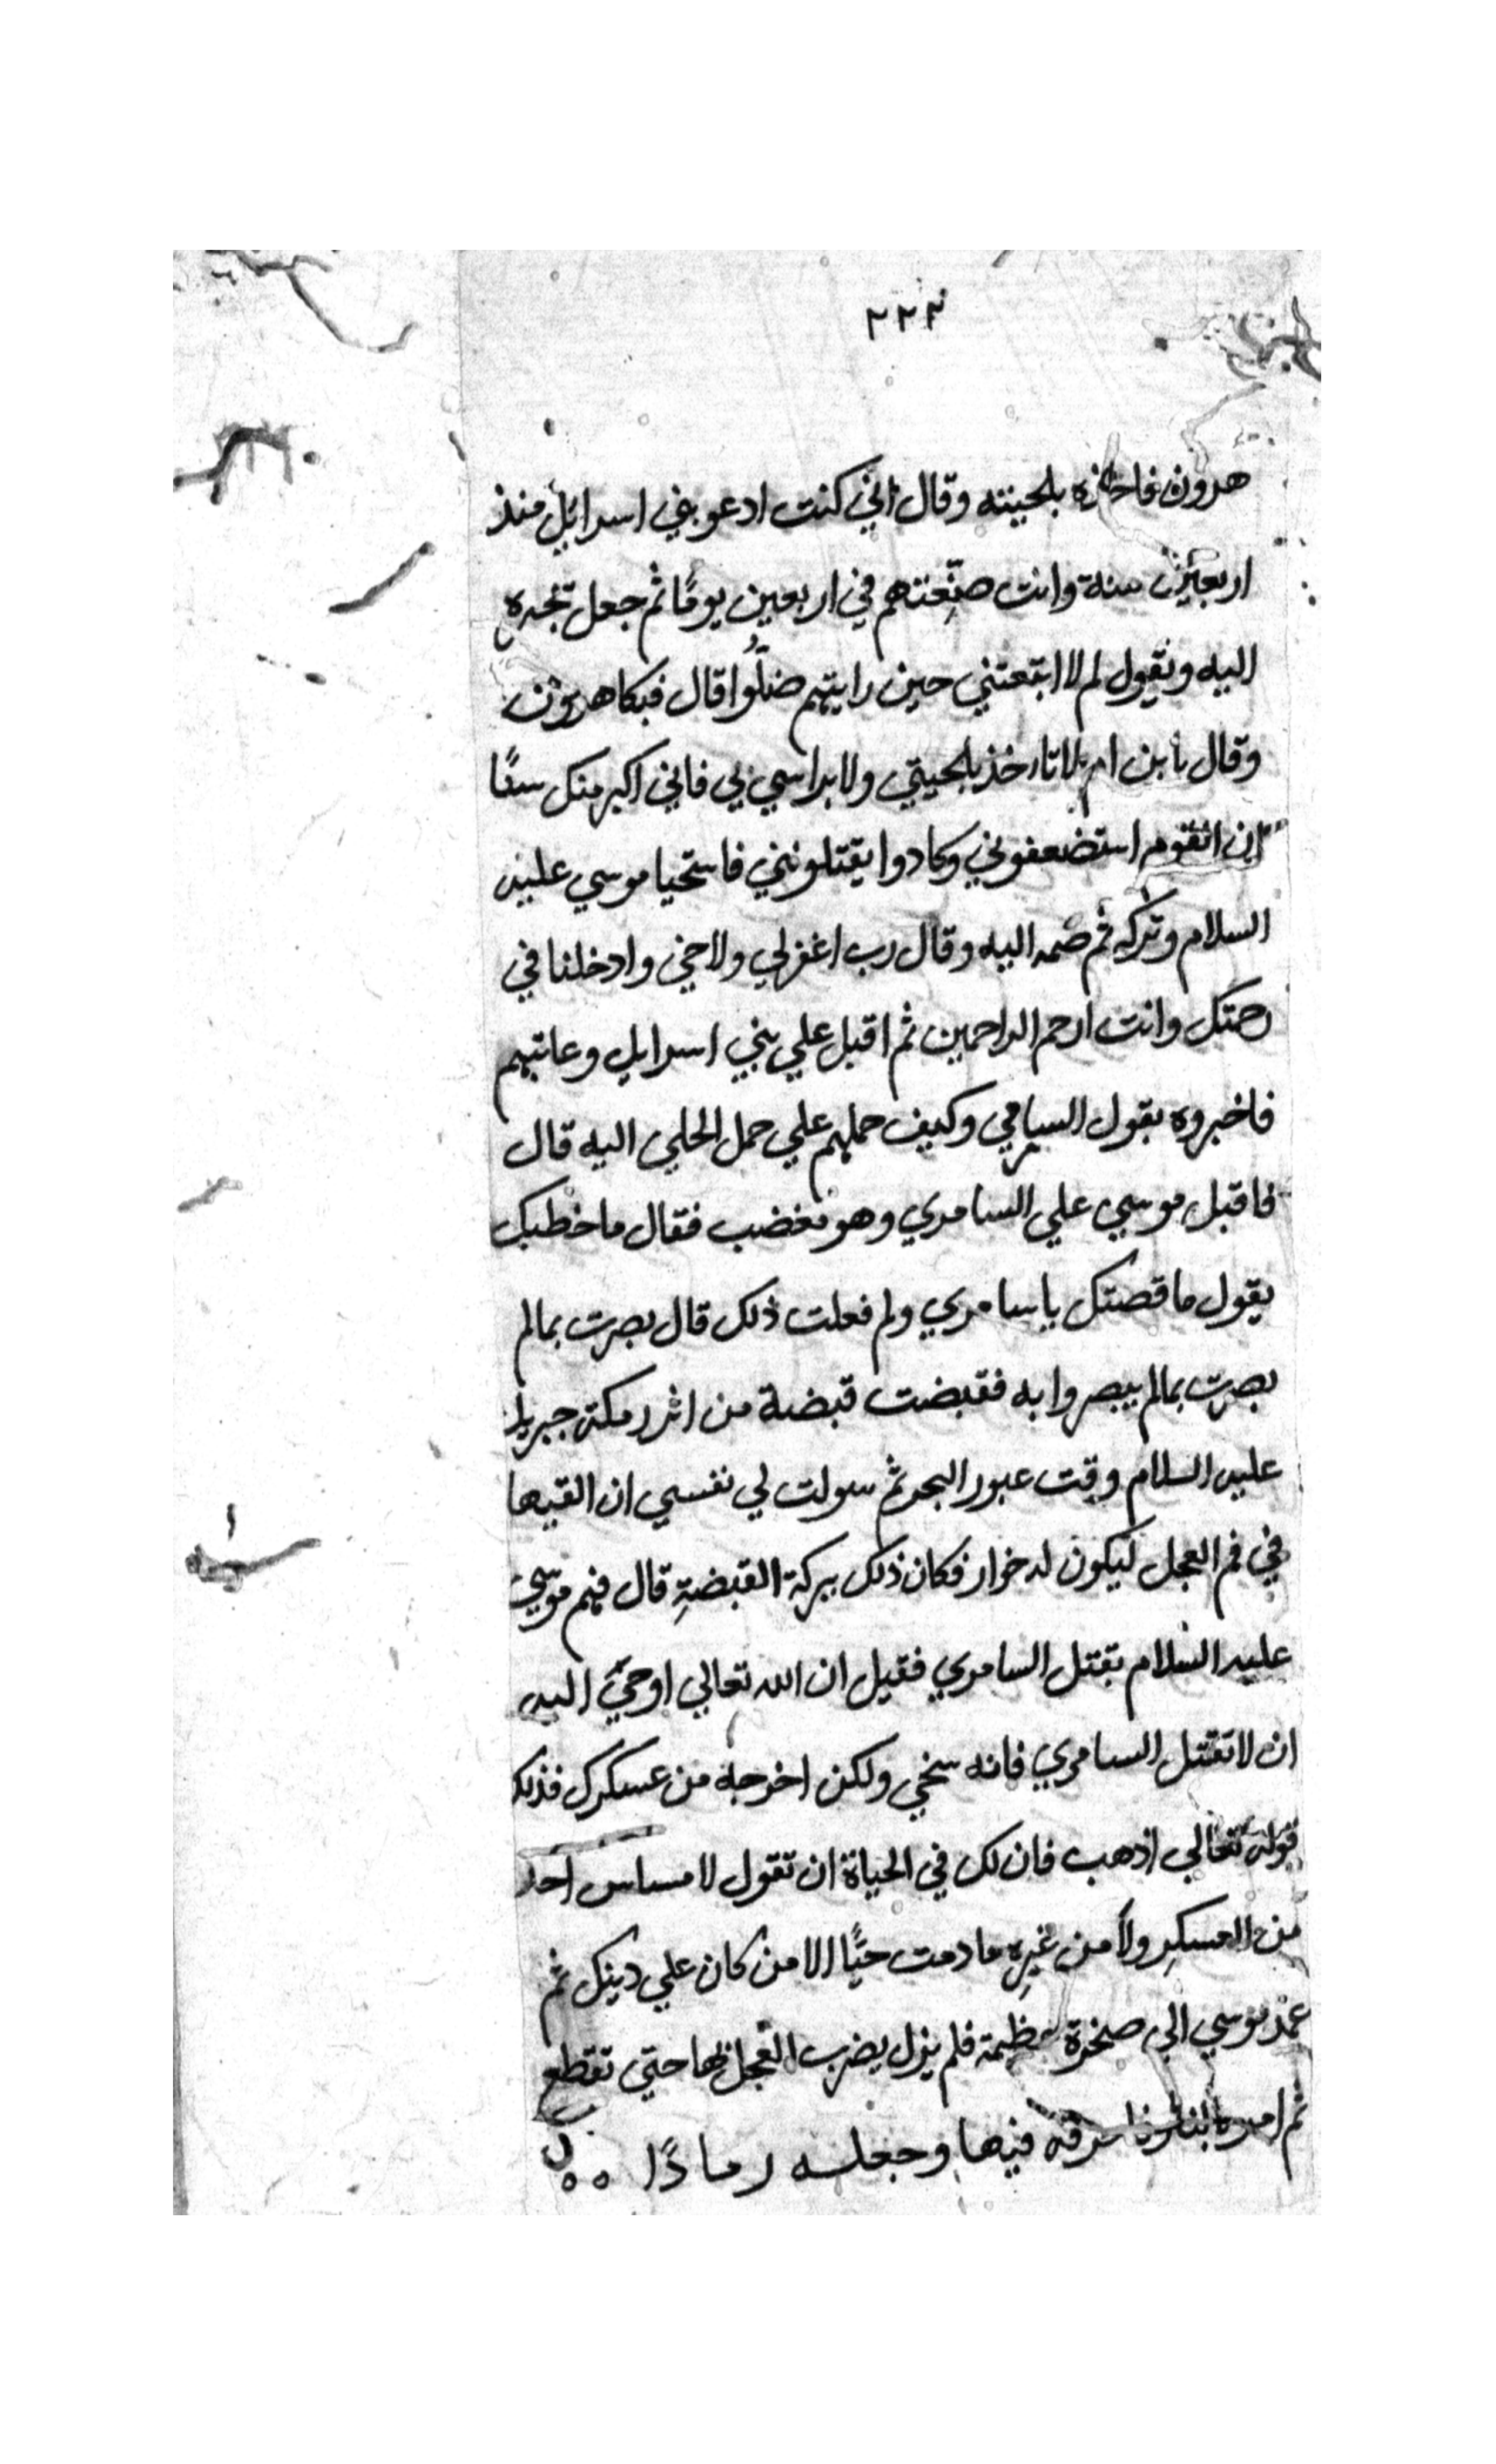 ٢٢٣
هرون فاخذه بلحيته وقال اني كنت ادعو بني اسرائيل منذ
اربعين سنة وانت ضيعتهم في اربعين يومًا ثم جعل يجره
اليه ويقول لم لا ابتعتني حين رايتهم ضلّوا قال فبكا هرون
وقال يابن ام لا تاخذ بلحيتي ولا براسي لي فاني اكبر منك سنًا
ان القوم استضعفوني وكادوا يقتلونني فاستحيا موسي عليه
السلام وتركه ثم ضمه اليه وقال رب اغفرلي ولاخي وادخلنا في
رحمتك وانت ارحم الراحمين ثم اقبل علي بني اسرايل وعاتبهم
فاخبروه بقول السامري وكيف حملهم علي حمل الحلي اليه قال
فاقبل موسي علي السامري وهو مغضب فقال ما خطبك
يقول ما قصتك ياسامري ولم فعلت ذلك قال بصرت بمالم
بصرت بمالم يبصروا به فقبضت قبضة من اثر رمكة جبريل
عليه السلام وقت عبور البحر ثم سولت لي نفسي ان القيها
في فم العجل ليكون له خوار فكان ذلك ببركة القبضةِ قال فهم موسي
عليه السلام بقتل السامري فقيل ان الله تعالي اوحيَ اليه
ان لا تقتل السامري فانه سخي ولكن اخرجه من عسكرك فذلك
قوله تعالي اذهب فان لك في الحياة ان تقول لا مساس احد
من العسكرِ ولا من غيرِه ما دمت حيًّا الا من كان علي دينك ثم
عمد موسي الي صخرة عظيمة فلم يزل يضرب العجل بها حتي تقطع
ثم امر فيها وجعله رمادًا